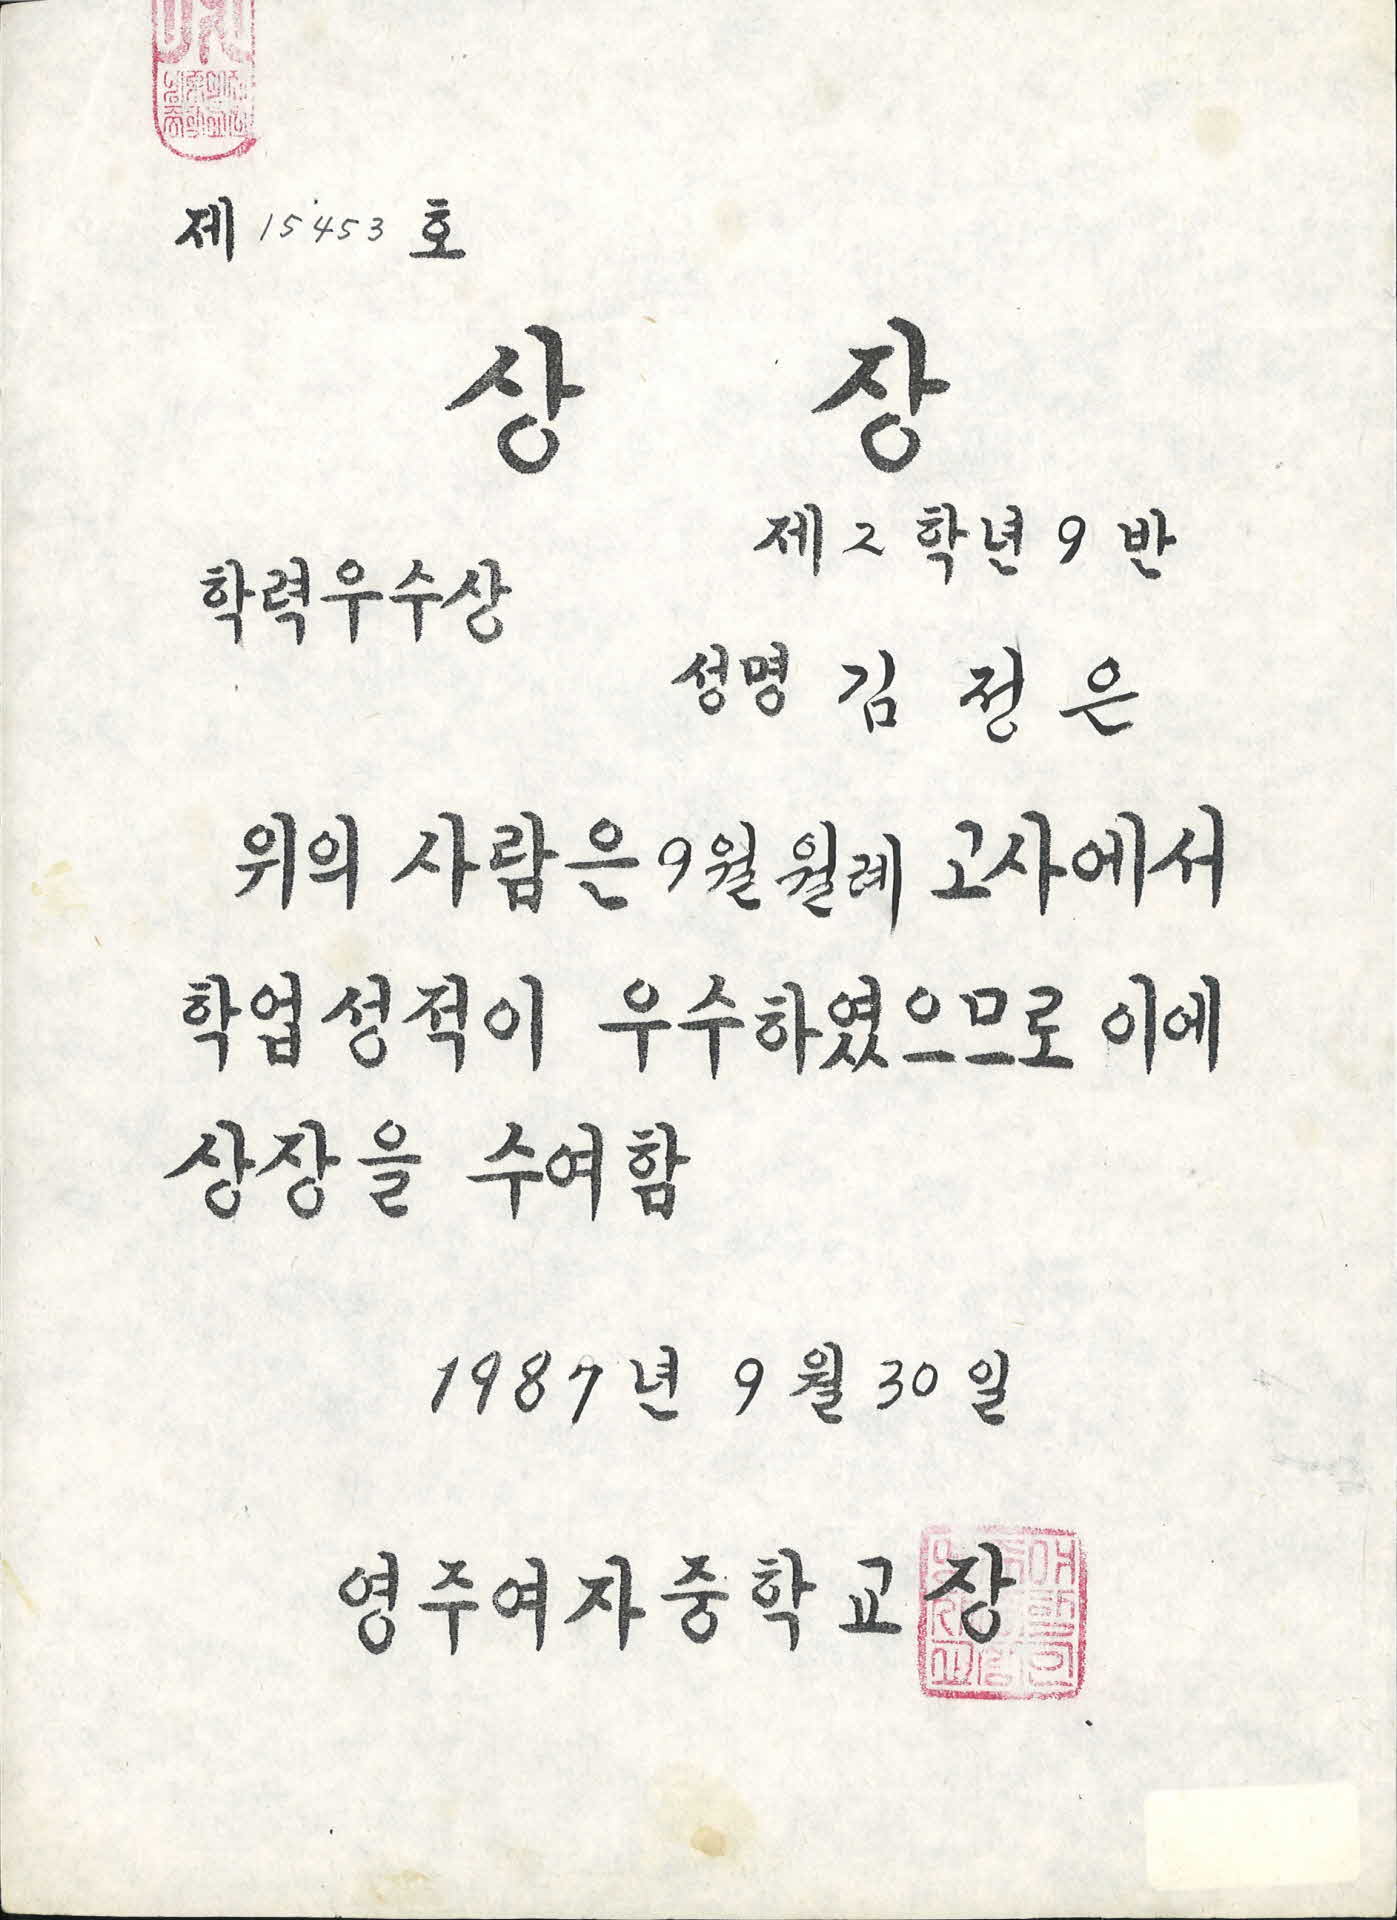 제 15453 호
상 장
제 2 학년 9 반
학력우수상
성명 김 정 은
위의 사람은 9월 월례 고사에서
학업성적이 우수하였으므로 이에
상장을 수여함
1987년 9월 30일
영주여자중학교장